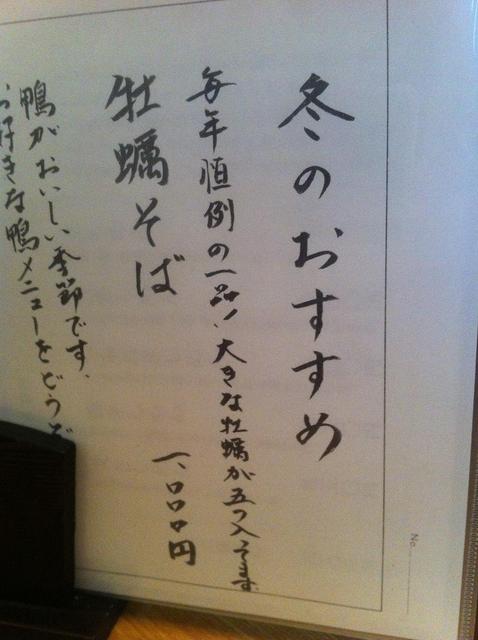 冬のおすすめ
毎年恒例の一品!大きな牡蠣が五つ入ってます
牡蠣そば
一、〇〇〇円
鴨がおいしい季節です、
お好きな鴨メニューをどうぞ
No.